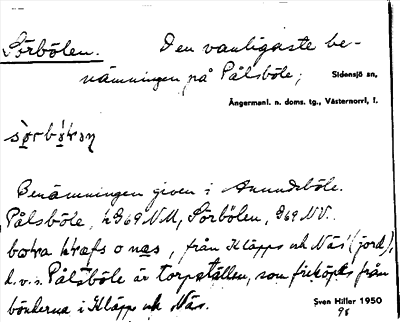 Sörbölen. Den vanligaste be-
nämningen på Pålsböle; Sidensjö sn,
Ångermanl. n. doms. tg., Västernorrl. l.
Benämningen given i Anundsböle.
Pålsböle, h G69 NM, Sörbölen, G69 NV.
från Kläpps och Näs' (jord),
d.v.s. Pålsböle är torpställen, som friköpts från
bönderna i Kläpp och Näs. Sven Hiller 1950
98